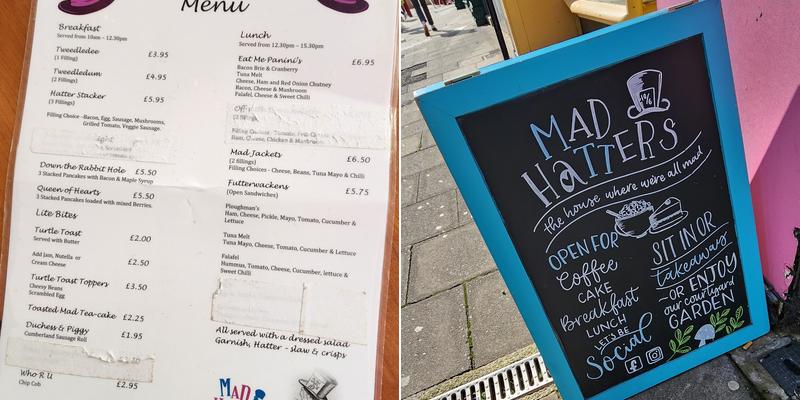 Menu
Breakfast
Served from 10am - 12.30pm
Tweedledee £3.95
(1 Filling)
Tweedledum £4.95
(2 Fillings)
Hatter Stacker £5.95
(3 Fillings)
Filling Choice -Bacon, Egg, Sausage, Mushrooms,
Grilled Tomato, Veggie Sausage.
Down the Rabbit Hole £5.50
3 Stacked Pancakes with Bacon & Maple Syrup
Queen of Hearts £5.50
3 Stacked Pancakes loaded with mixed Berries.
Lite Bites
Turtle Toast £2.00
Served with Butter
Add Jam, Nutella or £2.50
Cream Cheese
Turtle Toast Toppers £3.50
Cheesy Beans
Scrambled Egg
Toasted Mad Tea-cake £2.25
Duchess & Piggy £1.95
Cumberland Sausage Roll
Who R U £2.95
Chip Cob
Lunch
Served from 12.30pm - 15.30pm
Eat Me Panini's £6.95
Bacon Brie & Cranberry
Tuna Melt
Cheese, Ham and Red Onion Chutney
Bacon, Cheese & Mushroom
Falafel, Cheese & Sweet Chilli
Mad Jackets £6.50
(2 fillings)
Filling Choices - Cheese, Beans, Tuna Mayo & Chilli
Futterwackens £5.75
(Open Sandwiches)
Ploughman's
Ham, Cheese, Pickle, Mayo, Tomato, Cucumber &
Lettuce
Tuna Melt
Tuna Mayo, Cheese, Tomato, Cucumber & Lettuce
Falafel
Hummus, Tomato, Cheese, Cucumber, lettuce &
Sweet Chilli
All served with a dressed salad
Garnish, Hatter - slaw & crisps
MAD
10/6
MAD
HATTERS
the house where we're all mad
OPEN FOR
Coffee
CAKE
Breakfast
LUNCH
LETS BE
Social
SIT IN OR
takeaway
~OR ENJOY
our courtyard
GARDEN